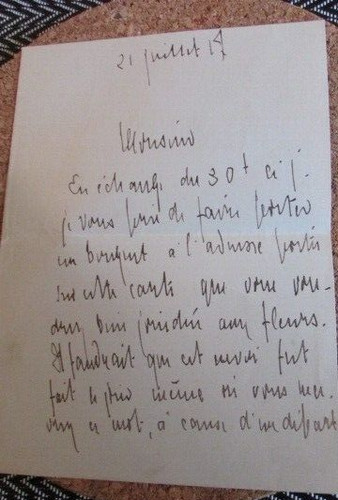 21 juillet 17
Monsieur
En échange du 30f ci j.
je vous prie de faire porter
un bouquet à l'adresse portée
sur cette carte que vous vou-
drez bien joindre aux fleurs.
Il faudrait que cet envoi fut
fait ce jour même où vous rece-
vrez ce mot, à cause d'un départ